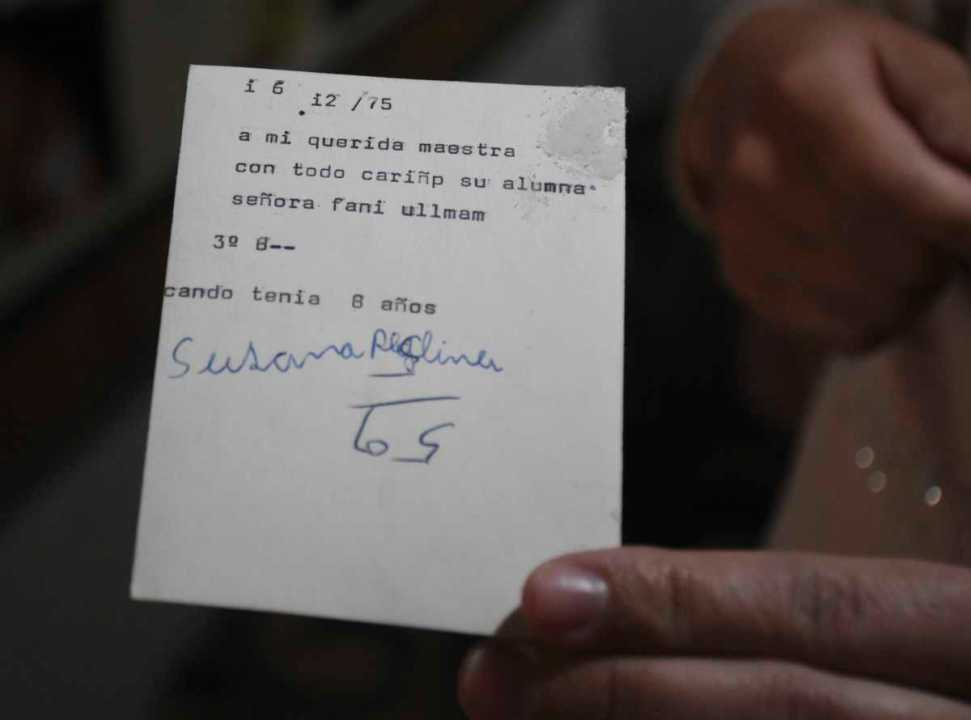 i 6 i2 /75
a mi querida maestra
con todo cariñp su alumna
señora fani ullmam
3º B--
cando tenia 8 años
Susana